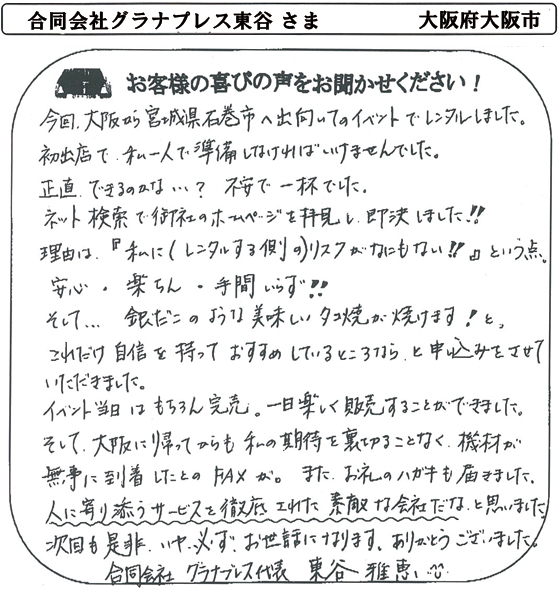 合同会社グラナプレス東谷 さま 大阪府大阪市
お客様の喜びの声をお聞かせください！
今回、大阪から宮城県石巻市へ出向いてのイベントでレンタルしました。
初出店で、私一人で準備しなければいけませんでした。
正直、できるのかな…？ 不安で一杯でした。
ネット検索で御社のホームページを拝見し、即決しました!!
理由は、『私に（レンタルする側の）リスクがなにもない!!』という点。
安心・楽ちん・手間いらず!!
そして… 銀だこのような美味しいタコ焼が焼けます！と、
これだけ自信を持っておすすめしているところなら、と申込みをさせて
いただきました。
イベント当日はもちろん完売。一日楽しく販売することができました。
そして、大阪に帰ってからも私の期待を裏切ることなく、機材が
無事に到着したとのFAXが。また、お礼のハガキも届きました。
人に寄り添うサービスを徹底された素敵な会社だな、と思いました。
次回も是非、いや、必ず、お世話になります。ありがとうございました。
合同会社 グラナプレス代表 東谷 雅恵